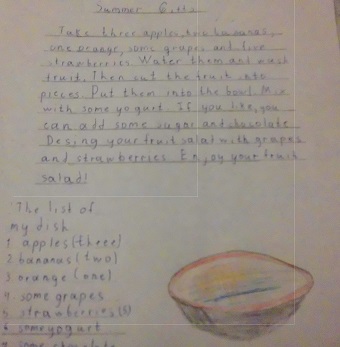 Summer
Take three apples, two bananas,
one orange, some grapes and five
strawberries. Water them and wash
fruit. Then cut the fruit into
pieces. Put them into the bowl. Mix
with some yogurt. If you like, you
can add some sugar and chocolate
Desing your fruit salad with grapes
and strawberries. Enjoy your fruit
salad!
The list of
my dish
1. apples (three)
2. bananas (two)
3. orange (one)
4. some grapes
5. strawberries (5)
6. some yogurt
some chocolate